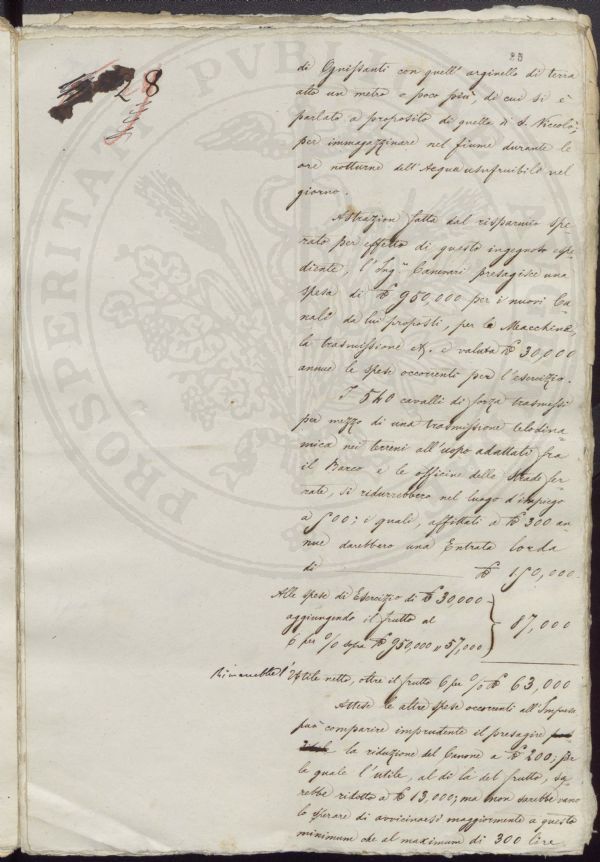 28
28
di Ognissanti con quell' arginello di terra
alto un metro o poco più, di cui si è
parlato a proposito di quella di S. Niccolò,
per immagazzinare nel fiume durante le
ore notturne dell'Acqua usufruibile nel
giorno.
Astrazion fatta dal risparmio spe-
rato per effetto di questo ingegnoso espe-
diente, l'Ing.e Canevari presagisce una
spesa di £ 950,000 per i nuovi Ca-
nali da lui proposti, per le Macchine,
la trasmissione &. e valuta £ 30,000
annue le spese occorrenti per l'esercizio.
I 540 cavalli di forza trasmessi
per mezzo di una trasmissione telodina-
mica nei terreni all'uopo adattati fra
il Barco e le officine delle Strade fer-
rate, si ridurrebbero nel luogo d'impiego
a 500; i quali, affittati a £ 300 an-
nue darebbero una Entrata lorda
di £ 150,000.
Alle spese di Esercizio di £ 30,000
aggiungendo il frutto al
6 per % sopra £ 950,000 " 57,000
87,000
Rimarrebbe l'Utile netto, oltre il frutto 6 per % £ 63,000
Attese le altre spese occorrenti all'Impresa
può comparire imprudente il presagire
la riduzione del Canone a £ 200; per
la quale l'utile, al di là del frutto, sa-
rebbe ridotto a £ 13,000; ma non sarebbe vano
lo sperare di avvicinarsi maggiormente a questo
minimum che al maximum di 300 lire
PROSPERITATI PVBLI